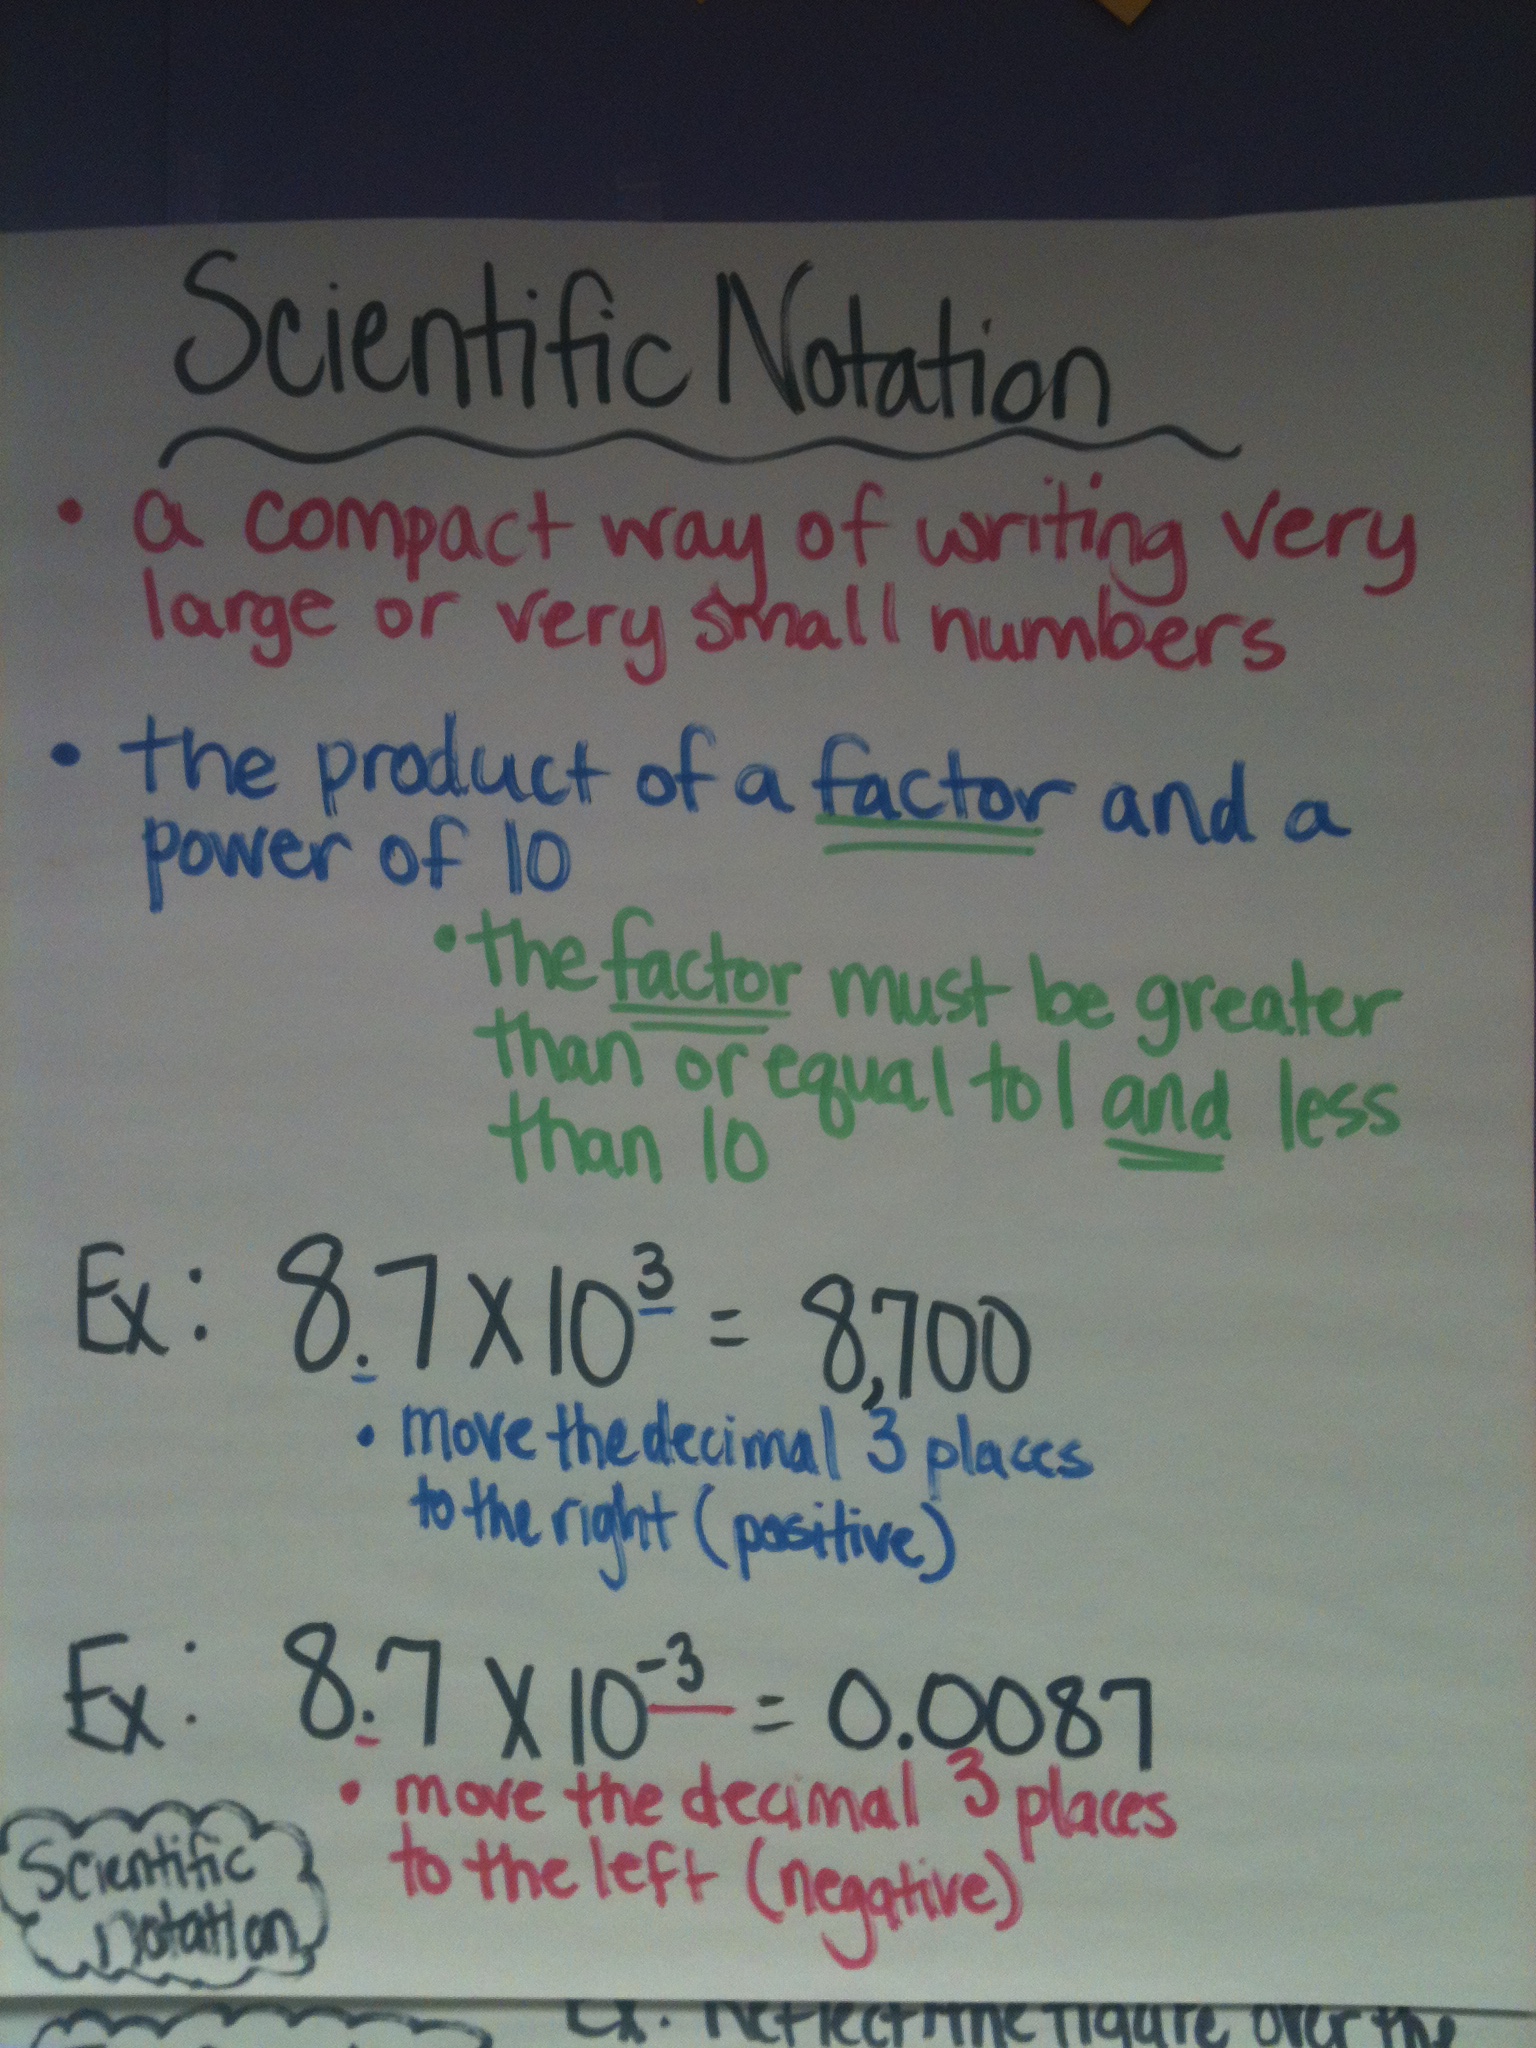 Scientific Notation
• a compact way of writing very
large or very small numbers
• the product of a factor and a
power of 10
• the factor must be greater
than or equal to 1 and less
than 10
Ex: 8.7 X 10³ = 8,700
• move the decimal 3 places
to the right (positive)
Ex: 8.7 X 10⁻³ = 0.0087
• move the decimal 3 places
to the left (negative)
Scientific
Notation
Ex: Reflect the figure over the